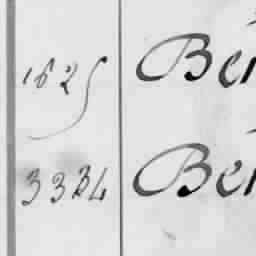 1625 Ber
3334 Ber